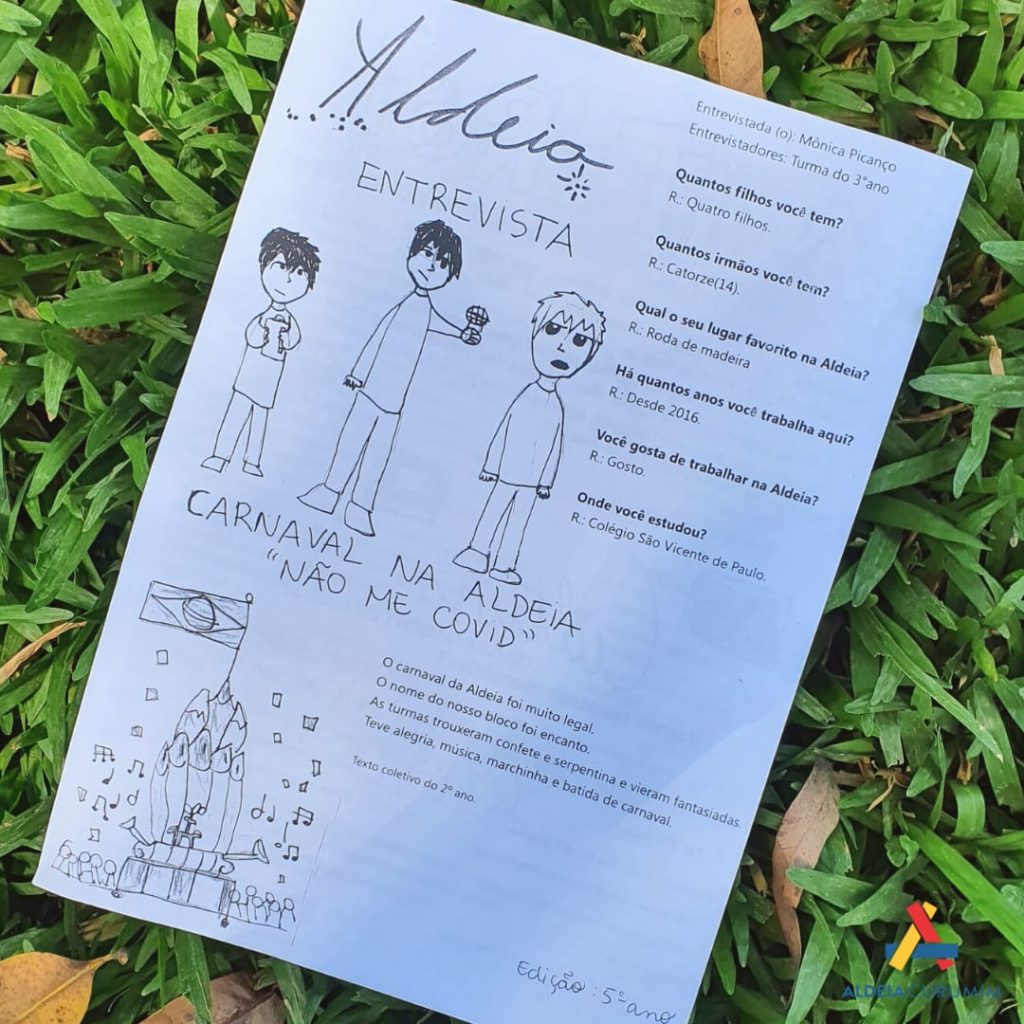 Aldeia
ENTREVISTA
Entrevistada (o): Mônica Picanço
Entrevistadores: Turma do 3°ano
Quantos filhos você tem?
R.: Quatro filhos.
Quantos irmãos você tem?
R.: Catorze(14).
Qual o seu lugar favorito na Aldeia?
R.: Roda de madeira
Há quantos anos você trabalha aqui?
R.: Desde 2016.
Você gosta de trabalhar na Aldeia?
R.: Gosto.
Onde você estudou?
R.: Colégio São Vicente de Paulo.
CARNAVAL NA ALDEIA
"NÃO ME COVID"
O carnaval da Aldeia foi muito legal.
O nome do nosso bloco foi encanto.
As turmas trouxeram confete e serpentina e vieram fantasiadas.
Teve alegria, música, marchinha e batida de carnaval.
Texto coletivo do 2° ano.
Edição: 5° ano
ALDEIA CURUMIM